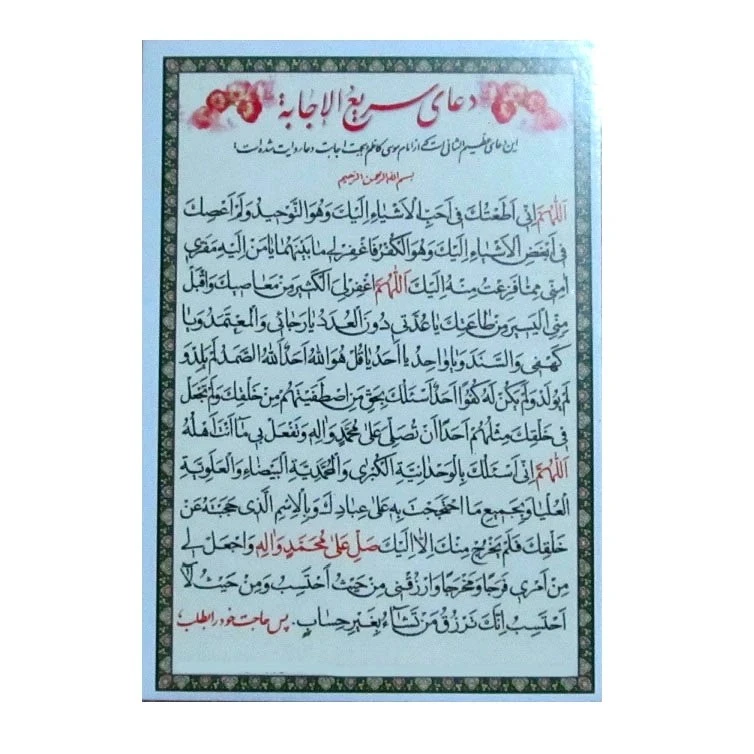 دعای سریع الإجابة
این دعای عظیم الشانی است که از امام موسی کاظم بجهت اجابت دعا روایت شده است:
بسم الله الرحمن الرحیم
اَللّٰهُمَّ اِنّی اَطَعْتُكَ فی اَحَبِّ الْاَشْیاءِ اِلَیْكَ وَهُوَ التَّوْحیدُ وَلَمْ اَعْصِكَ
فی اَبْغَضِ الْاَشْیاءِ اِلَیْكَ وَهُوَ الْكُفْرُ فَاغْفِرْ لی ما بَیْنَهُما یا مَنْ اِلَیْهِ مَفَرّی
امِنّی مِمّا فَزِعْتُ مِنْهُ اِلَیْكَ اَللّٰهُمَّ اغْفِرْ لِیَ الْكَثیرَ مِنْ مَعاصیكَ وَاقْبَلْ
مِنِّی الْیَسیرَ مِنْ طاعَتِكَ یا عُدَّتی دُونَ الْعُدَدِ یا رَجائی وَالْمُعْتَمَدُ وَیا
كَهْفی وَالسَّنَدَ وَیا واحِدُ یا اَحَدُ یا قُلْ هُوَ اللهُ اَحَدٌ اَللهُ الصَّمَدُ لَمْ یَلِدْ وَ
لَمْ یُولَدْ وَلَمْ یَكُنْ لَهُ كُفُوًا اَحَدٌ اَسْئَلُكَ بِحَقِّ مَنِ اصْطَفَیْتَهُمْ مِنْ خَلْقِكَ وَلَمْ تَجْعَلْ
فی خَلْقِكَ مِثْلَهُمْ اَحَدًا اَنْ تُصَلِّیَ عَلٰی مُحَمَّدٍ وَالِهِ وَتَفْعَلَ بی مٰا اَنْتَ اَهْلُهُ
اَللّٰهُمَّ اِنّی اَسْئَلُكَ بِالْوَحْدانِیَّةِ الْكُبْرٰی وَالْمُحَمَّدِیَّةِ الْبَیْضاءِ وَالْعَلَوِیَّةِ
الْعُلْیا وَبِجَمیعِ مَا احْتَجَجْتَ بِهِ عَلٰی عِبادِكَ وَبِالْاِسْمِ الَّذی حَجَبْتَهُ عَنْ
خَلْقِكَ فَلَمْ یَخْرُجْ مِنْكَ اِلّا اِلَیْكَ صَلِّ عَلٰی مُحَمَّدٍ وَالِهِ وَاجْعَلْ لی
مِنْ اَمْری فَرَجًا وَمَخْرَجًا وَارْزُقْنی مِنْ حَیْثُ اَحْتَسِبُ وَمِنْ حَیْثُ لا
اَحْتَسِبُ اِنَّكَ تَرْزُقُ مَنْ تَشاءُ بِغَیْرِ حِسابٍ. پس حاجت خود را بطلب؛